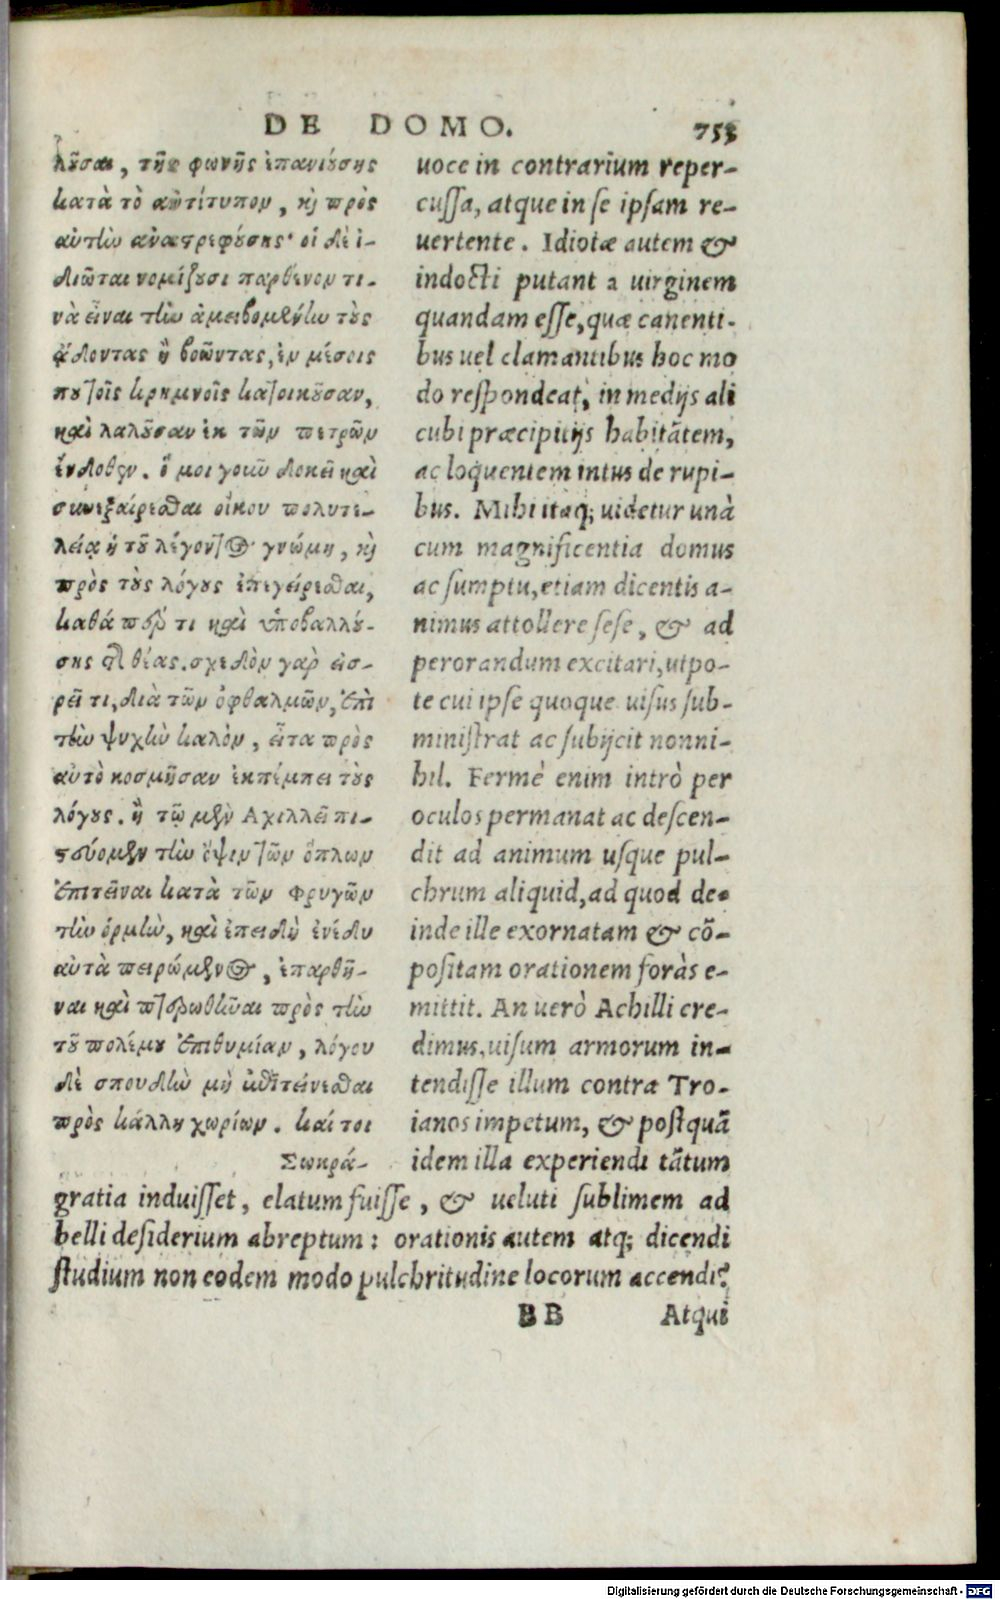 DE DOMO. 753
λῦσαι, τῆς φωνῆς ἐπανιούσης
κατὰ τὸ ἀντίτυπον, καὶ πρὸς
αὐτὴν ἀναστρεφούσης· οἱ δὲ ἰ-
διῶται νομίζουσι παρθένον τι-
νὰ εἶναι τὴν ἀμειβομένην τοὺς
ᾄδοντας ἢ βοῶντας, ἐν μέσοις
που τοῖς κρημνοῖς κατοικοῦσαν,
καὶ λαλοῦσαν ἐκ τῶν πετρῶν
ἔνδοθεν. ἐμοὶ γοῦν δοκεῖ καὶ
συνεξαίρεσθαι οἴκου πολυτε-
λείᾳ ἡ τοῦ λέγοντος γνώμη, καὶ
πρὸς τοὺς λόγους ἐπεγείρεσθαι,
καθάπερ τι καὶ ὑποβαλλού-
σης τῆς θέας. σχεδὸν γὰρ εἰσ-
ρεῖ τι, διὰ τῶν ὀφθαλμῶν, ἐπὶ
τὴν ψυχὴν καλὸν, εἶτα πρὸς
αὐτὸ κοσμῆσαν ἐκπέμπει τοὺς
λόγους. ἢ τῷ μὲν Ἀχιλλεῖ πι-
στεύομεν τὴν ὄψιν τῶν ὅπλων
ἐπιτεῖναι κατὰ τῶν Φρυγῶν
τὴν ὀργὴν, καὶ ἐπειδὴ ἐνέδυ
αὐτὰ πειρώμενος, ἐπαρθῆ-
ναι καὶ πτερωθῆναι πρὸς τὴν
τοῦ πολέμου ἐπιθυμίαν, λόγου
δὲ σπουδὴν μὴ ἐπιτείνεσθαι
πρὸς κάλλη χωρίων. καίτοι
Σωκρά-
uoce in contrarium reper-
cussa, atque in se ipsam re-
uertente. Idiotæ autem &
indocti putant uirginem
quandam esse, quæ canenti-
bus uel clamantibus hoc mo
do respondeat, in medijs ali
cubi præcipitijs habitãtem,
ac loquentem intus de rupi-
bus. Mihi itaq; uidetur unà
cum magnificentia domus
ac sumptu, etiam dicentis a-
nimus attollere sese, & ad
perorandum excitari, utpo-
te cui ipse quoque uisus sub-
ministrat ac subijcit nonni-
hil. Fermè enim intrò per
oculos permanat ac descen-
dit ad animum usque pul-
chrum aliquid, ad quod de-
inde ille exornatam & cõ-
positam orationem foràs e-
mittit. An uerò Achilli cre-
dimus, uisum armorum in-
tendisse illum contra Tro-
ianos impetum, & postquã
idem illa experiendi tãtum
gratia induisset, elatum fuisse, & ueluti sublimem ad
belli desiderium abreptum: orationis autem atq; dicendi
studium non eodem modo pulchritudine locorum accendi?
BB Atqui
Digitalisierung gefördert durch die Deutsche Forschungsgemeinschaft - DFG